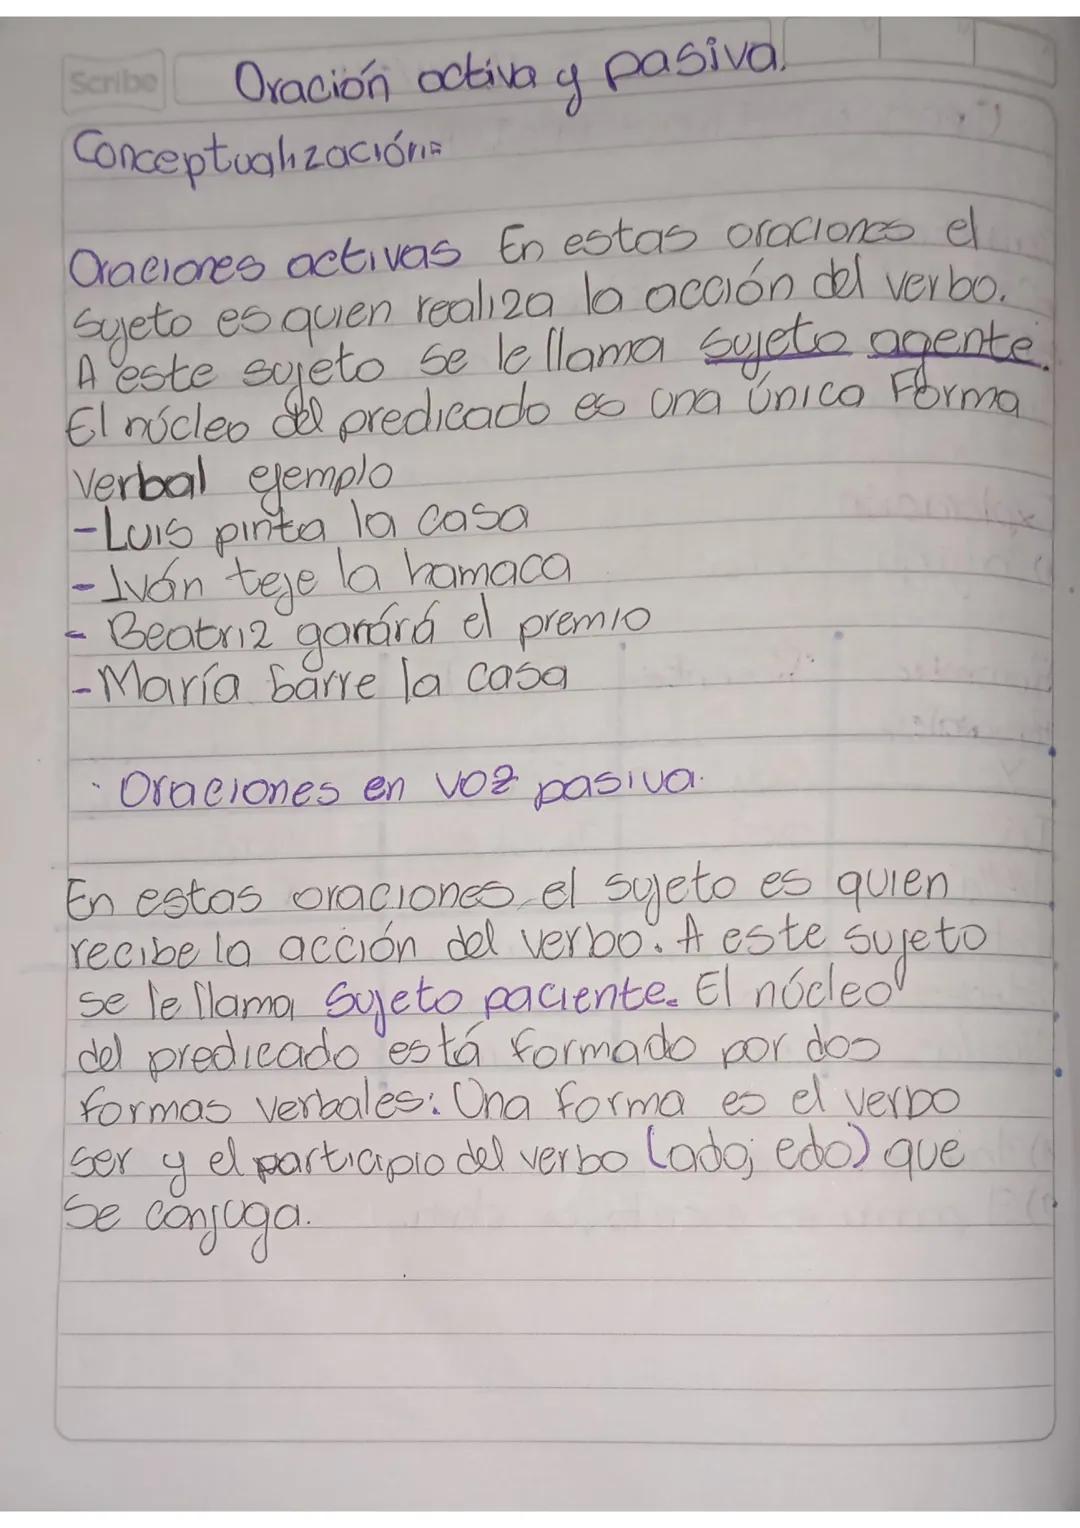 Scribe
Oración activa y pasiva.
Conceptualización:
Oraciones activas En estas oraciones el
sujeto es quien realiza la acción del verbo.
A este sujeto se le llama sujeto agente.
El núcleo del predicado es una única Forma
verbal ejemplo
-Luis pinta la casa
-Iván teje la hamaca
- Beatriz ganárá el premio
-María barre la casa
· Oraciones en voz pasiva.
En estas oraciones el sujeto es quien
recibe la acción del verbo. A este sujeto
se le llama Sujeto paciente. El núcleo
del predicado está formado por dos
formas verbales: Una forma es el verbo
ser y el participio del verbo (ado; edo) que
se conjuga.